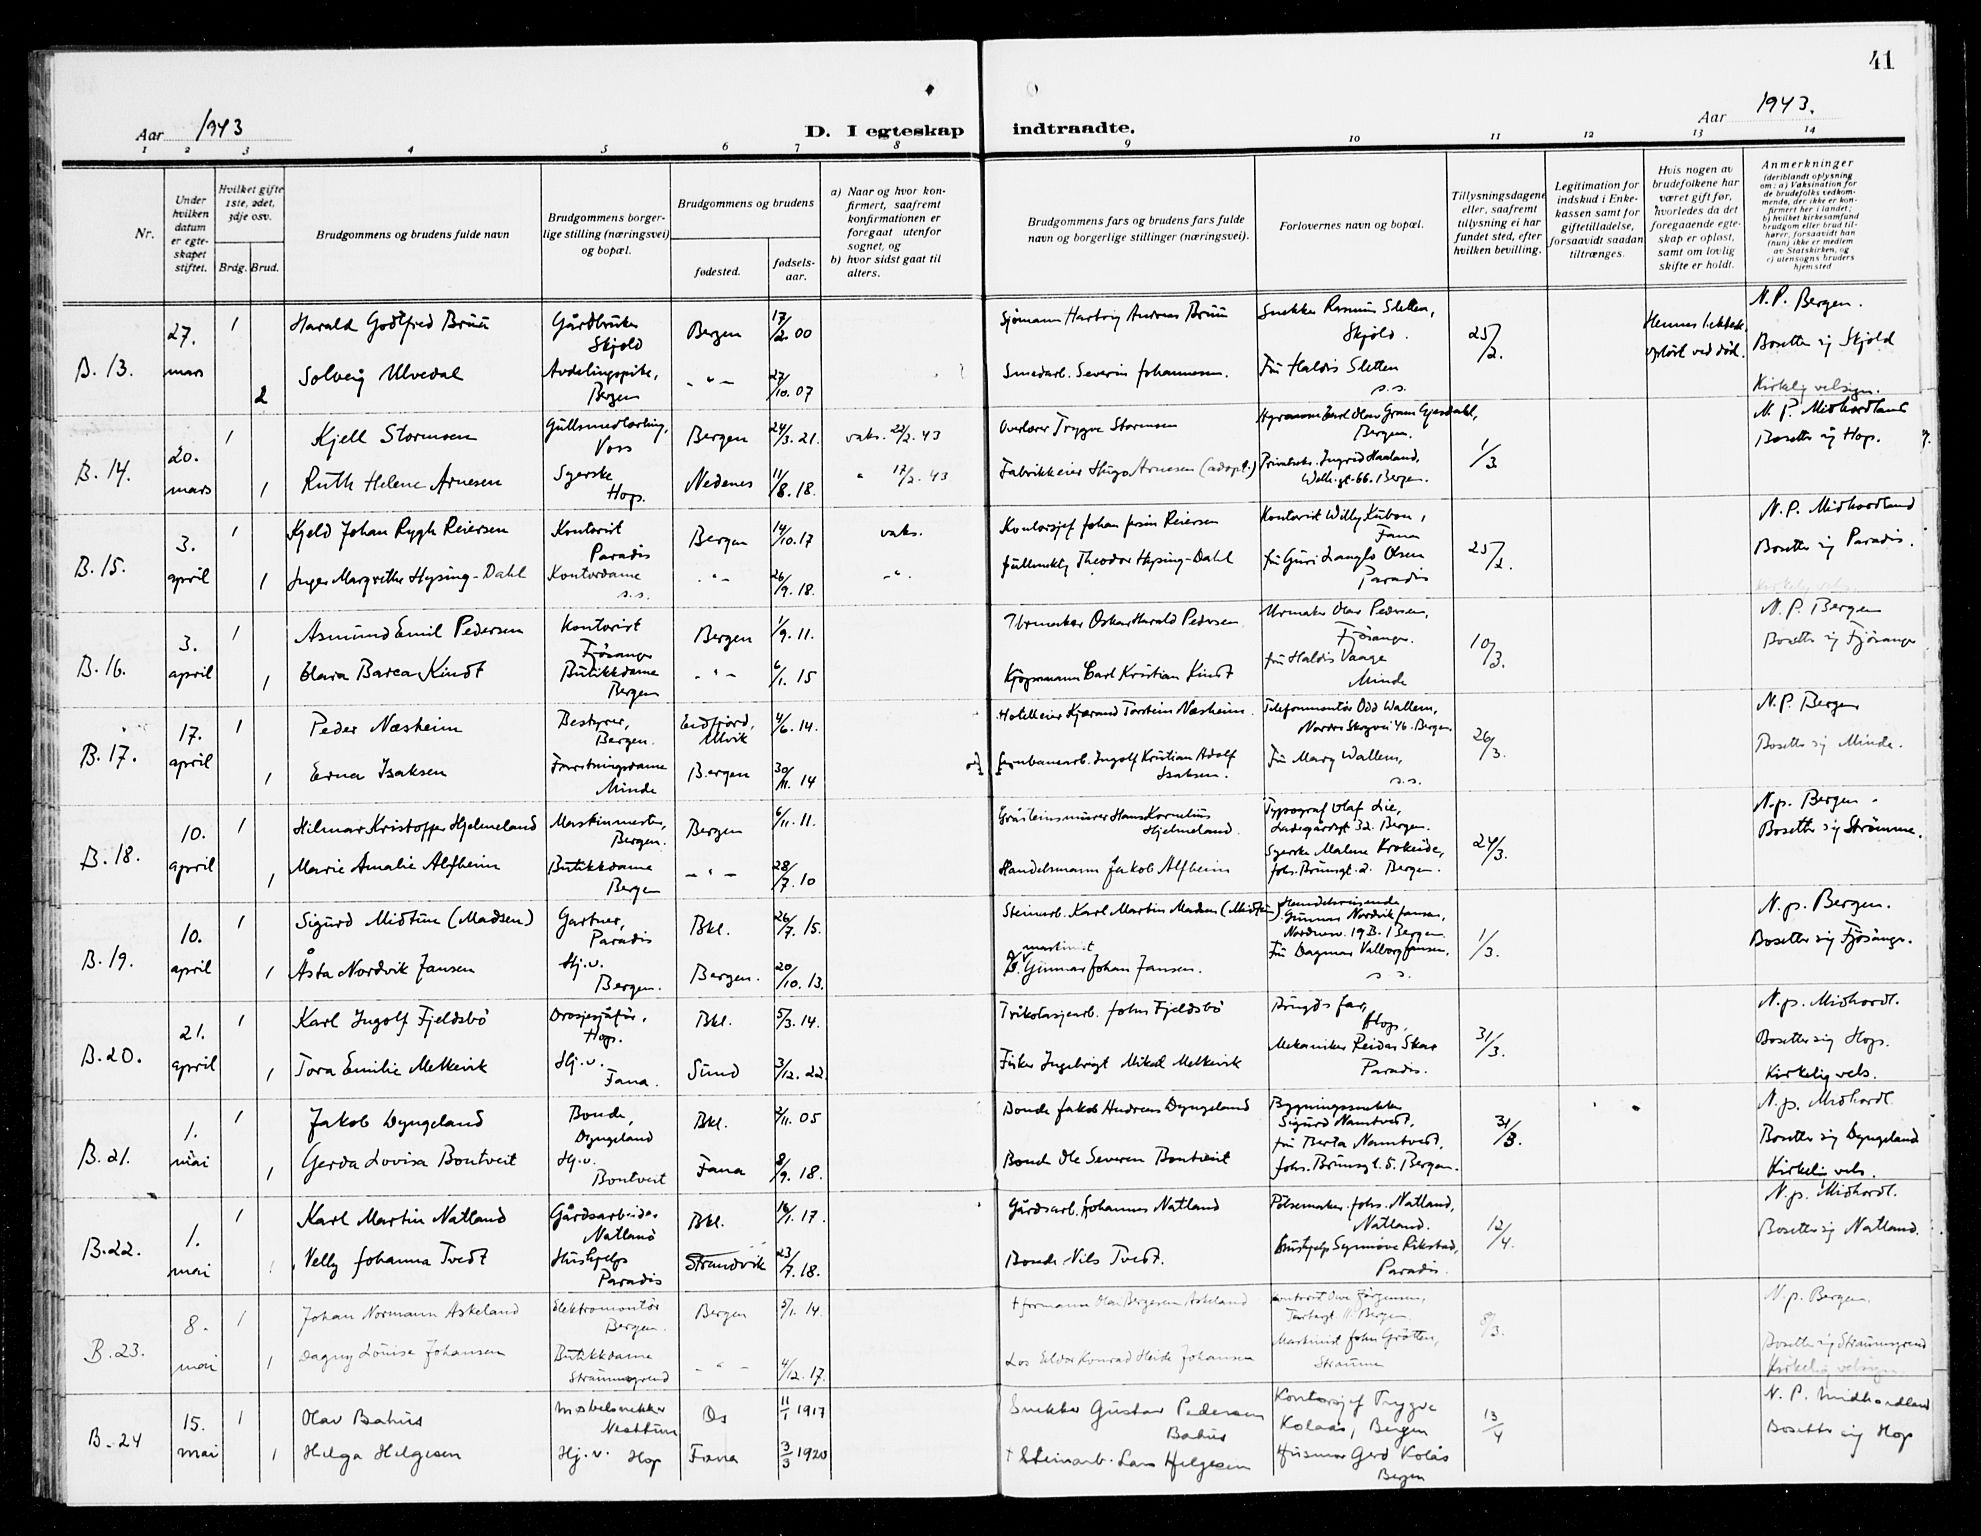 41
Aar 1943
D. I egteskap indtraadte.
Aar 1943.
1 2 3 4 5 6 7 8 9 10 11 12 13 14
Nr.
Under hvilken datum er egteskapet stiftet.
Hvilket gifte 1ste, 2det, 3dje osv.
Brdg. Brud.
Brudgommens og brudens fulde navn
Brudgommens borgerlige stilling (næringsvei) og bopæl.
Brudgommens og brudens
fødested.
fødselsaar.
a) Naar og hvor konfirmert, saafremt konfirmationen er foregaat utenfor sognet, og
b) hvor sidst gaat til alters.
Brudgommens fars og brudens fars fulde navn og borgerlige stillinger (næringsvei).
Forlovernes navn og bopæl.
Tillysningsdagene eller, saafremt tillysning ei har fundet sted, efter hvilken bevilling.
Legitimation for indskud i Enkekassen samt for giftetilladelse, forsaavidt saadan tiltrænges.
Hvis nogen av brudefolkene har været gift før, hvorledes da det foregaaende egteskap er opløst, samt om lovlig skifte er holdt.
Anmerkninger
(deriblandt oplysning om: a) Vaksination for de brudefolks vedkommende, der ikke er konfirmert her i landet; b) hvilket kirkesamfund brudgom eller brud tilhører, forsaavidt han (hun) ikke er medlem av Statskirken, og c) utensogns bruders hjemsted
B. 13. 27. mars
1 Harald Godtfred Bruu Gårdbruker Skjold Bergen 17/2. 00 Sjømann Hartvig Andreas Bruu Snekker Rasmus Sletten, Skjold. 25/2. Hennes 1. ekteskap opløst ved død. N.P. Bergen.
Bosetter sig Skjold
2 Solveig Ulvedal Avdelingspike, Bergen - " - 27/10. 07 Smedarb. Severin Johannesen. Fru Haldis Sletten s.s. Kirkelig velsign.
B. 14. 20. mars
1 Kjell Stormsen Gullsmedlærling, Voss Bergen 24/3. 21. vaks. 22/2. 43 Overlærer Trygve Stormsen Bergen. 1/3 N.P. Midhordland
Bosetter sig Hop.
1 Ruth Helene Arnesen Syerske Hop. Nedenes 11/8. 18. " 17/2. 43 Fabrikkeier Hugo Arnesen (adopt.) Ingrid Haaland, 66. Bergen.
B. 15. 3. april
1 Kjeld Johan Rygh Reiersen Kontorist Paradis Bergen 14/10. 17 vaks. Kontorsjef Johan Reiersen Kontorist Willy Kubon, Fana 25/2. N.P. Midhordland
Bosetter sig Paradis.
1 Inger Margrethe Hysing-Dahl Kontordame s.s. - " - 26/9. 18. - " - Theodor Hysing-Dahl fru Guri Langlo Olsen Paradis
B. 16. 3. april
1 Asmund Emil Pedersen Kontorist Fjøsanger Bergen 1/9. 11. Urmaker Oskar Harald Pedersen Urmaker Olav Pedersen, Fjøsanger. 10/3. N.P. Bergen
Bosetter sig Fjøsanger
1 Clara Barca Kindt Butikkdame Bergen - " - 6/1. 15 Kjøpmann Carl Kristian Kindt fru Haldis Vaage Minde
B. 17. 17. april
1 Peder Næsheim Bestyrer, Bergen. Eidfjord, Ulvik 4/6. 14. Hotelleier Kjærand Torstein Næsheim Telefonmontør Odd Wallem, Nordre Skogvei 46. Bergen 26/3. N.P. Bergen
Bosetter sig Minde.
1 Erna Isaksen Forretningsdame Minde Bergen 30/11. 14 Jernbanearb. Ingolf Kristian Adolf Isaksen. Fru Mary Wallem, s.s.
B. 18. 10. april
1 Hilmar Kristoffer Hjelmeland Maskinmester, Bergen. Bergen 6/11. 11. Gråsteinsmurer Hans Kornelius Hjelmeland. Typograf Olaf Lie, Ladegårdsgt 32. Bergen. 24/3. N.p. Bergen.
Bosetter sig Strømme.
1 Marie Amalie Alfheim Butikkdame Bergen - " - 28/7. 10 Handelsmann Jakob Alfheim Syerske Malene Krokeide, Johs. Brunsgt. 2. Bergen.
B. 19. 10. april
1 Sigurd Midtun (Madsen) Gartner, Paradis Bkl. 26/7. 15. Steinarb. Karl Martin Madsen (Midtun) Handelsreisende Gunnar Nordvik Jansen, 19 B. Bergen 1/3. N.p. Bergen.
Bosetter sig Fjøsanger.
1 Åsta Nordvik Jansen Hj.v. Bergen. Bergen. 20/10. 13. Gunnar Johan Jansen. Fru Dagmar Valborg Jansen, s.s.
B. 20. 21. april
1 Karl Ingolf Fjeldsbø Drosjesjåfør, Hop. Bkl. 5/3. 14. Trikotasjearb. John Fjeldsbø Brugds far, Hop. 31/3. N.p. Midhordl.
Bosetter sig Hop.
1 Tora Emilie Melkevik Hj.v. Fana. Sund 3/12. 22. Fisker Ingebrigt Mikal Melkevik Mekaniker Reidar Skar Paradis. Kirkelig vels.
B. 21. 1. mai
1 Jakob Dyngeland Bonde, Dyngeland Bkl. 2/11. 05 Bonde Jakob Andreas Dyngeland Bygningssnekker Sigurd Namtvedt, 31/3. N.p. Midhordl.
Bosetter sig Dyngeland
1 Gerda Lovisa Bontveit Hj.v. Bontveit Fana 8/9. 18. Bonde Ole Severen Bontveit fru Berta Namtvedt, Johs. Brunsgt. 5. Bergen. Kirkelig vels.
B. 22. 1. mai
1 Karl Martin Natland Gårdsarbeider Natland Bkl. 16/1. 17. Gårdsarb. Johannes Natland Pølsemaker Johs. Natland, Natland. 12/4. N.p. Midhordl.
Bosetter sig Natland.
1 Nelly Johanna Tvedt Hushjelp Paradis Strandvik 23/7. 18. Bonde Nils Tvedt. Hushjelp Synnøve Rikstad, Paradis.
B. 23. 8. mai
1 Johan Normann Askeland Elektromontør Bergen. Bergen 5/1. 14. † formann Olai Bergesen Askeland Kontorist Ove Jørgensen, Bergen 8/3. N.p. Bergen.
Bosetter sig Straumsgrend
1 Dagny Louise Johansen Butikkdame Straumsgrend - " - 4/12. 17. Los Eldor Konrad Heide Johansen Maskinist John Grøtten, Straume Kirkelig velsign.
B. 24 15. mai
1 Olav Bahus Møbelsnekker Nesttun Os 11/1 1917 Snekker Gustav Pedersen Bahus Kontorsjef Trygve Kolaas, Bergen 13/4 N.P. Midhordland
Bosetter sig Hop
1 Helga Helgesen Hj.v. Hop Fana 3/3 1920 † Steinarb. Lars Helgesen Husmor Gerd Kolås Bergen